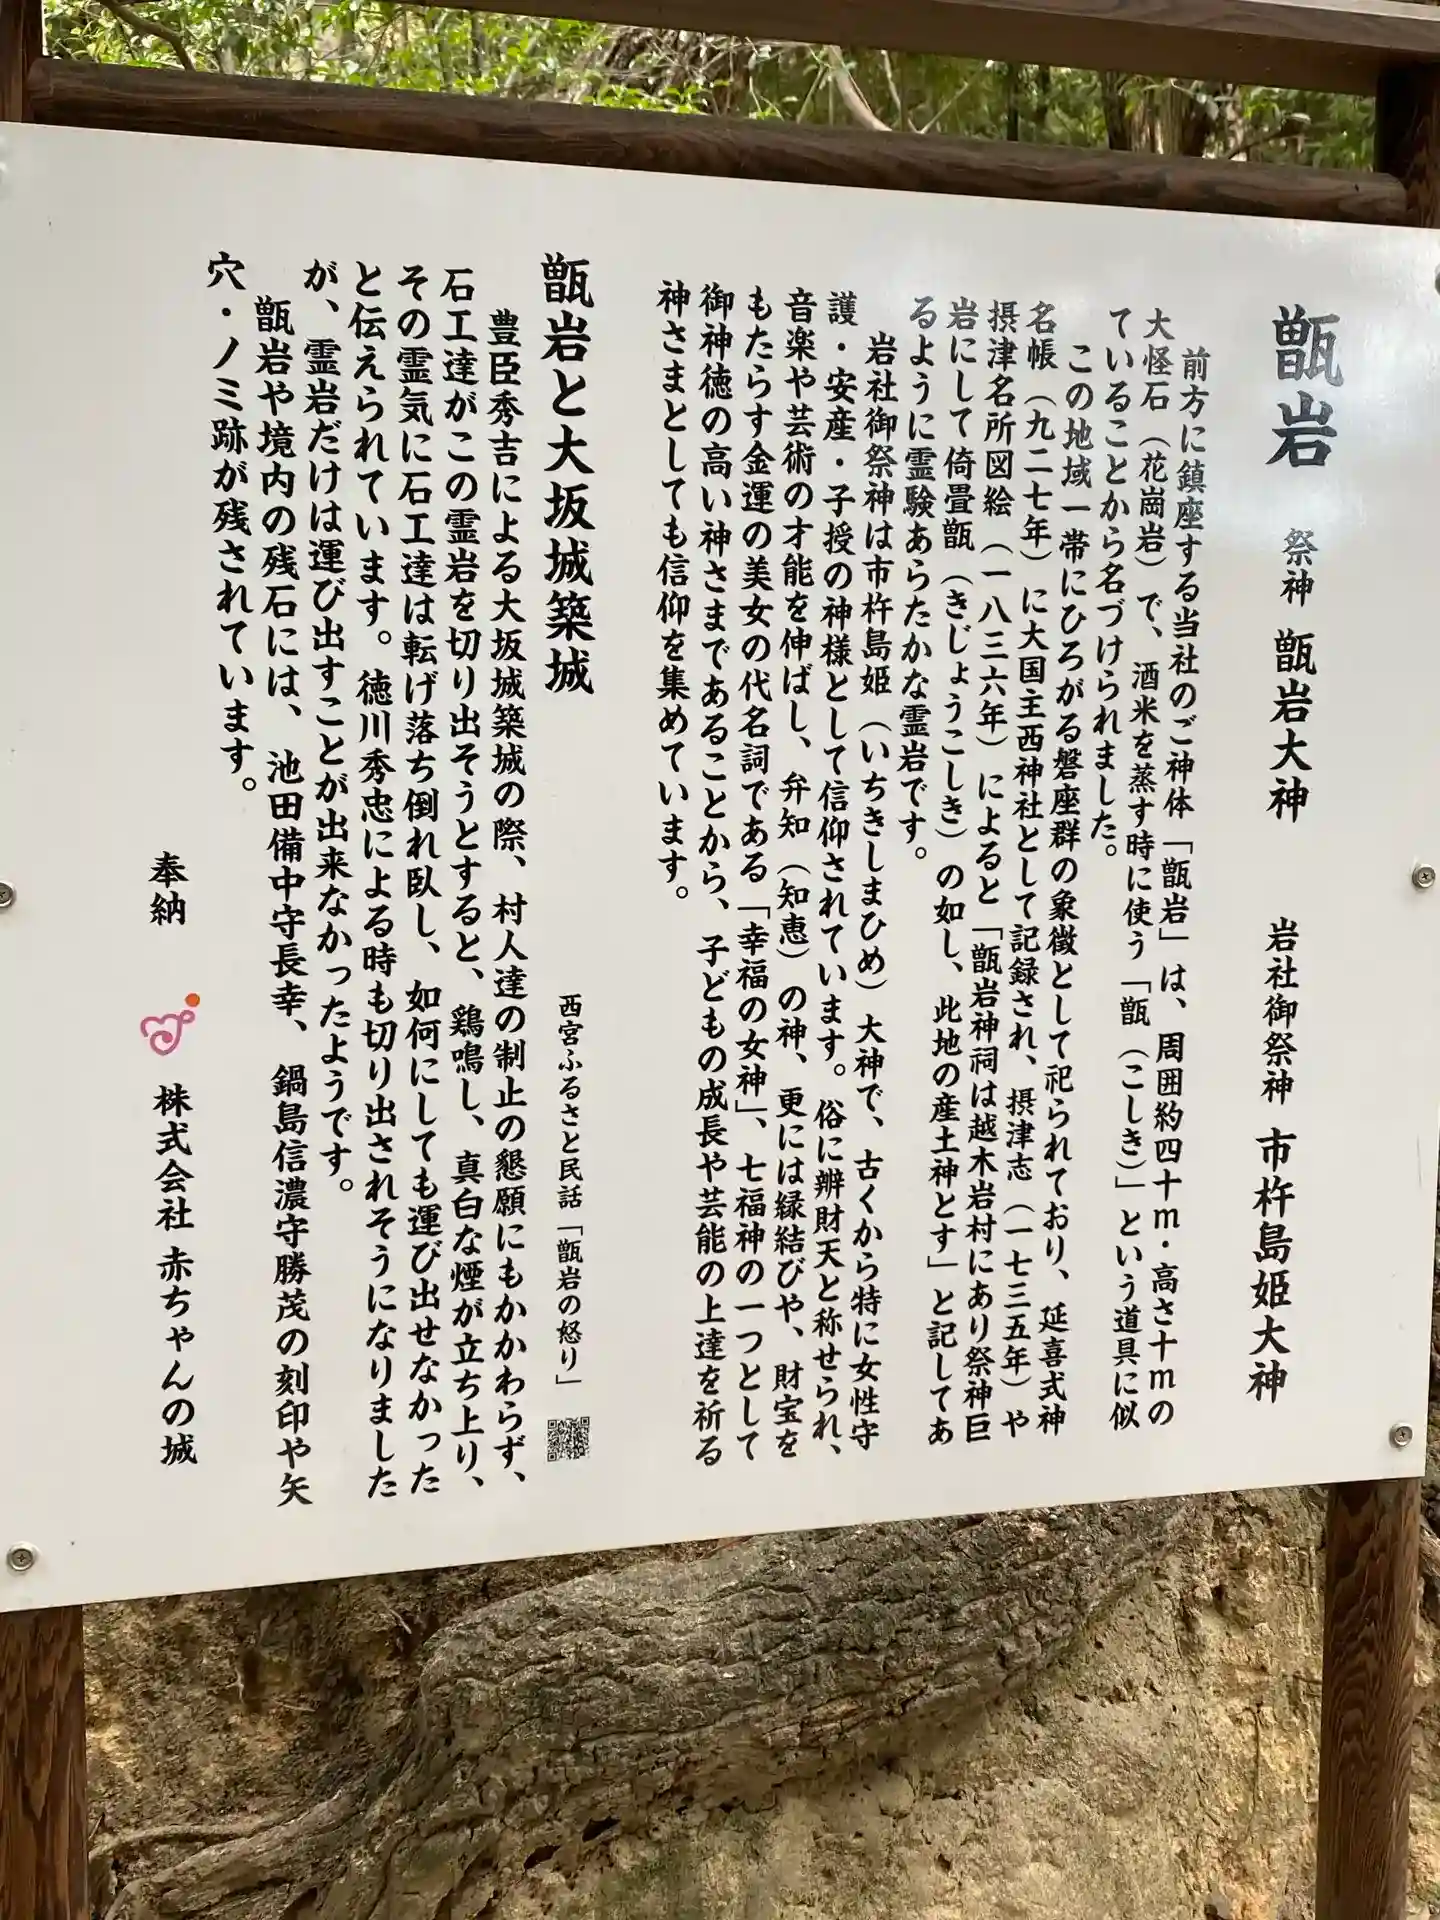 甑岩　祭神　甑岩大神　岩社御祭神　市杵島姫大神
前方に鎮座する当社のご神体「甑岩」は、周囲約四十m・高さ十mの
大怪石（花崗岩）で、酒米を蒸す時に使う「甑（こしき）」という道具に似
ていることから名づけられました。
この地域一帯にひろがる磐座群の象徴として祀られており、延喜式神
名帳（九二七年）に大国主西神社として記録され、摂津志（一七三五年）や
摂津名所図絵（一八三六年）によると「甑岩神祠は越木岩村にあり祭神巨
岩にして倚畳甑（きじょうこしき）の如し、此地の産土神とす」と記してあ
るように霊験あらたかな霊岩です。
岩社御祭神は市杵島姫（いちきしまひめ）大神で、古くから特に女性守
護・安産・子授の神様として信仰されています。俗に辨財天と称せられ、
音楽や芸術の才能を伸ばし、弁知（知恵）の神、更には縁結びや、財宝を
もたらす金運の美女の代名詞である「幸福の女神」、七福神の一つとして
御神徳の高い神さまであることから、子どもの成長や芸能の上達を祈る
神さまとしても信仰を集めています。
甑岩と大坂城築城　西宮ふるさと民話「甑岩の怒り」
豊臣秀吉による大坂城築城の際、村人達の制止の懇願にもかかわらず、
石工達がこの霊岩を切り出そうとすると、鶏鳴し、真白な煙が立ち上り、
その霊気に石工達は転げ落ち倒れ臥し、如何にしても運び出せなかった
と伝えられています。徳川秀忠による時も切り出されそうになりました
が、霊岩だけは運び出すことが出来なかったようです。
甑岩や境内の残石には、池田備中守長幸、鍋島信濃守勝茂の刻印や矢
穴・ノミ跡が残されています。
奉納　株式会社 赤ちゃんの城